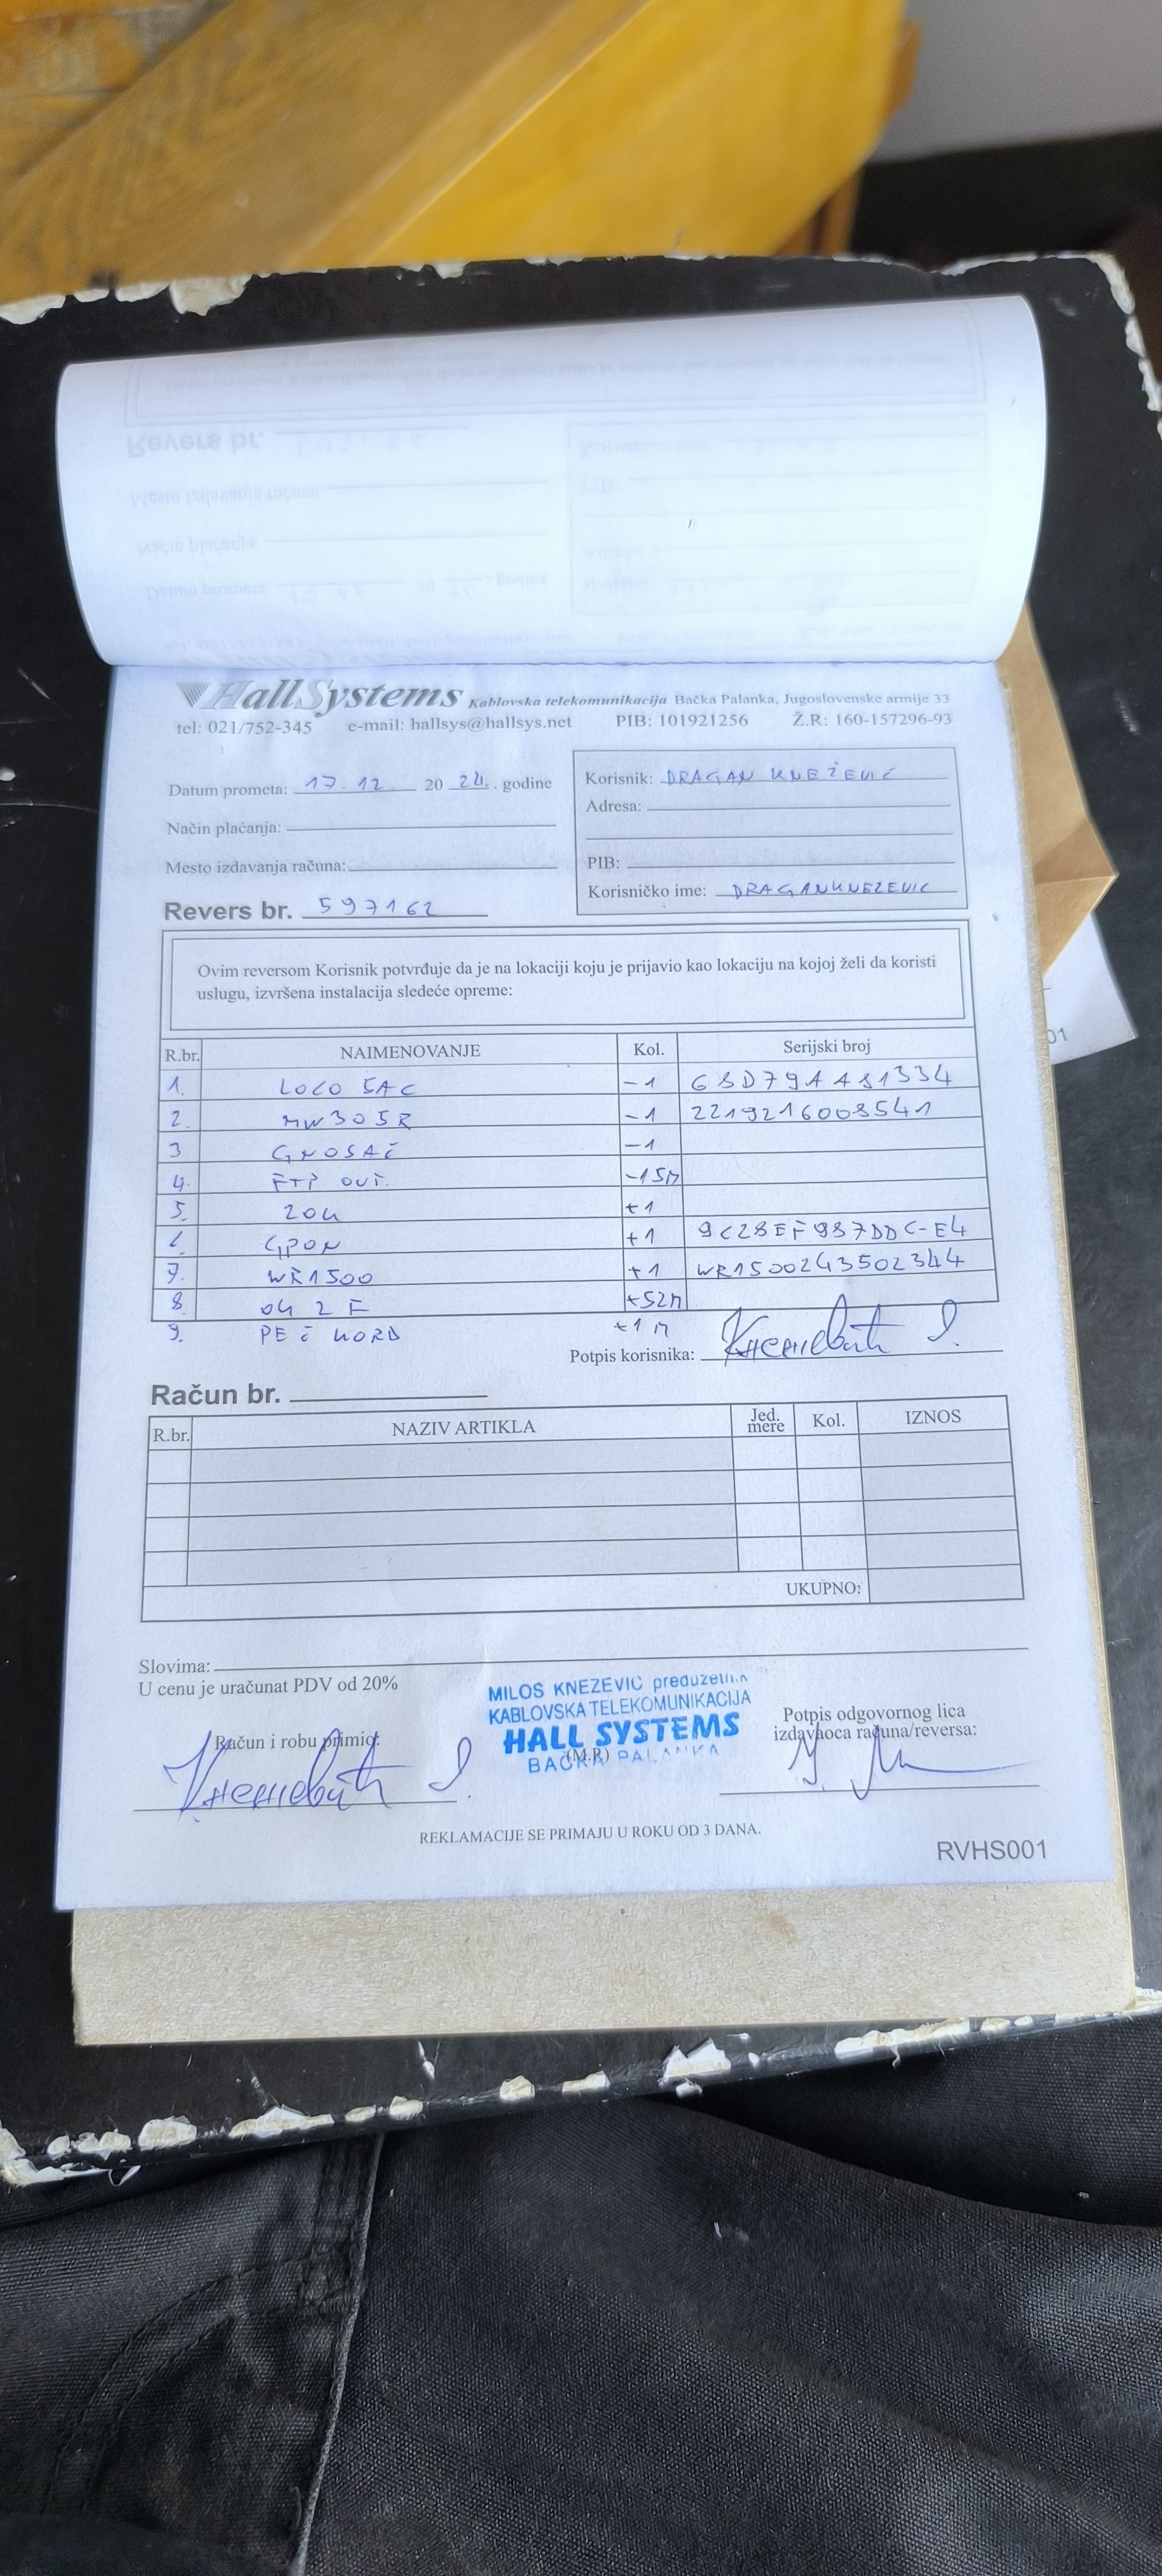 HallSystems Kablovska telekomunikacija Bačka Palanka, Jugoslovenske armije 33
tel: 021/752-345 e-mail: hallsys@hallsys.net PIB: 101921256 Ž.R: 160-157296-93
Datum prometa: 17.12. 2024. godine
Način plaćanja:
Mesto izdavanja računa:
Revers br. 597162
Korisnik: DRAGAN KNEŽEVIĆ
Adresa:
PIB:
Korisničko ime: DRAGANKNEZEVIC
Ovim reversom Korisnik potvrđuje da je na lokaciji koju je prijavio kao lokaciju na kojoj želi da koristi
uslugu, izvršena instalacija sledeće opreme:
R.br. NAIMENOVANJE Kol. Serijski broj
1. LOCO 5AC -1 68D79AA81334
2. MW305R -1 2219216008541
3 GNOSAČ -1
4. FTP OUT. -15M
5. ZOK +1
6. GPON +1 9C28EF987DDC-E4
7. WR1500 +1 WR1500243502344
8. OK 2F +52M
9. PEČ KORD +1M
Potpis korisnika: Кнежевић Д.
Račun br.
R.br. NAZIV ARTIKLA Jed. mere Kol. IZNOS
UKUPNO:
Slovima:
U cenu je uračunat PDV od 20%
MILOS KNEZEVIC preduzetnik
KABLOVSKA TELEKOMUNIKACIJA
HALL SYSTEMS
BAČKA PALANKA
(M.P.)
Račun i robu primio:
Кнежевић Д.
Potpis odgovornog lica
izdavaoca računa/reversa:
REKLAMACIJE SE PRIMAJU U ROKU OD 3 DANA.
RVHS001